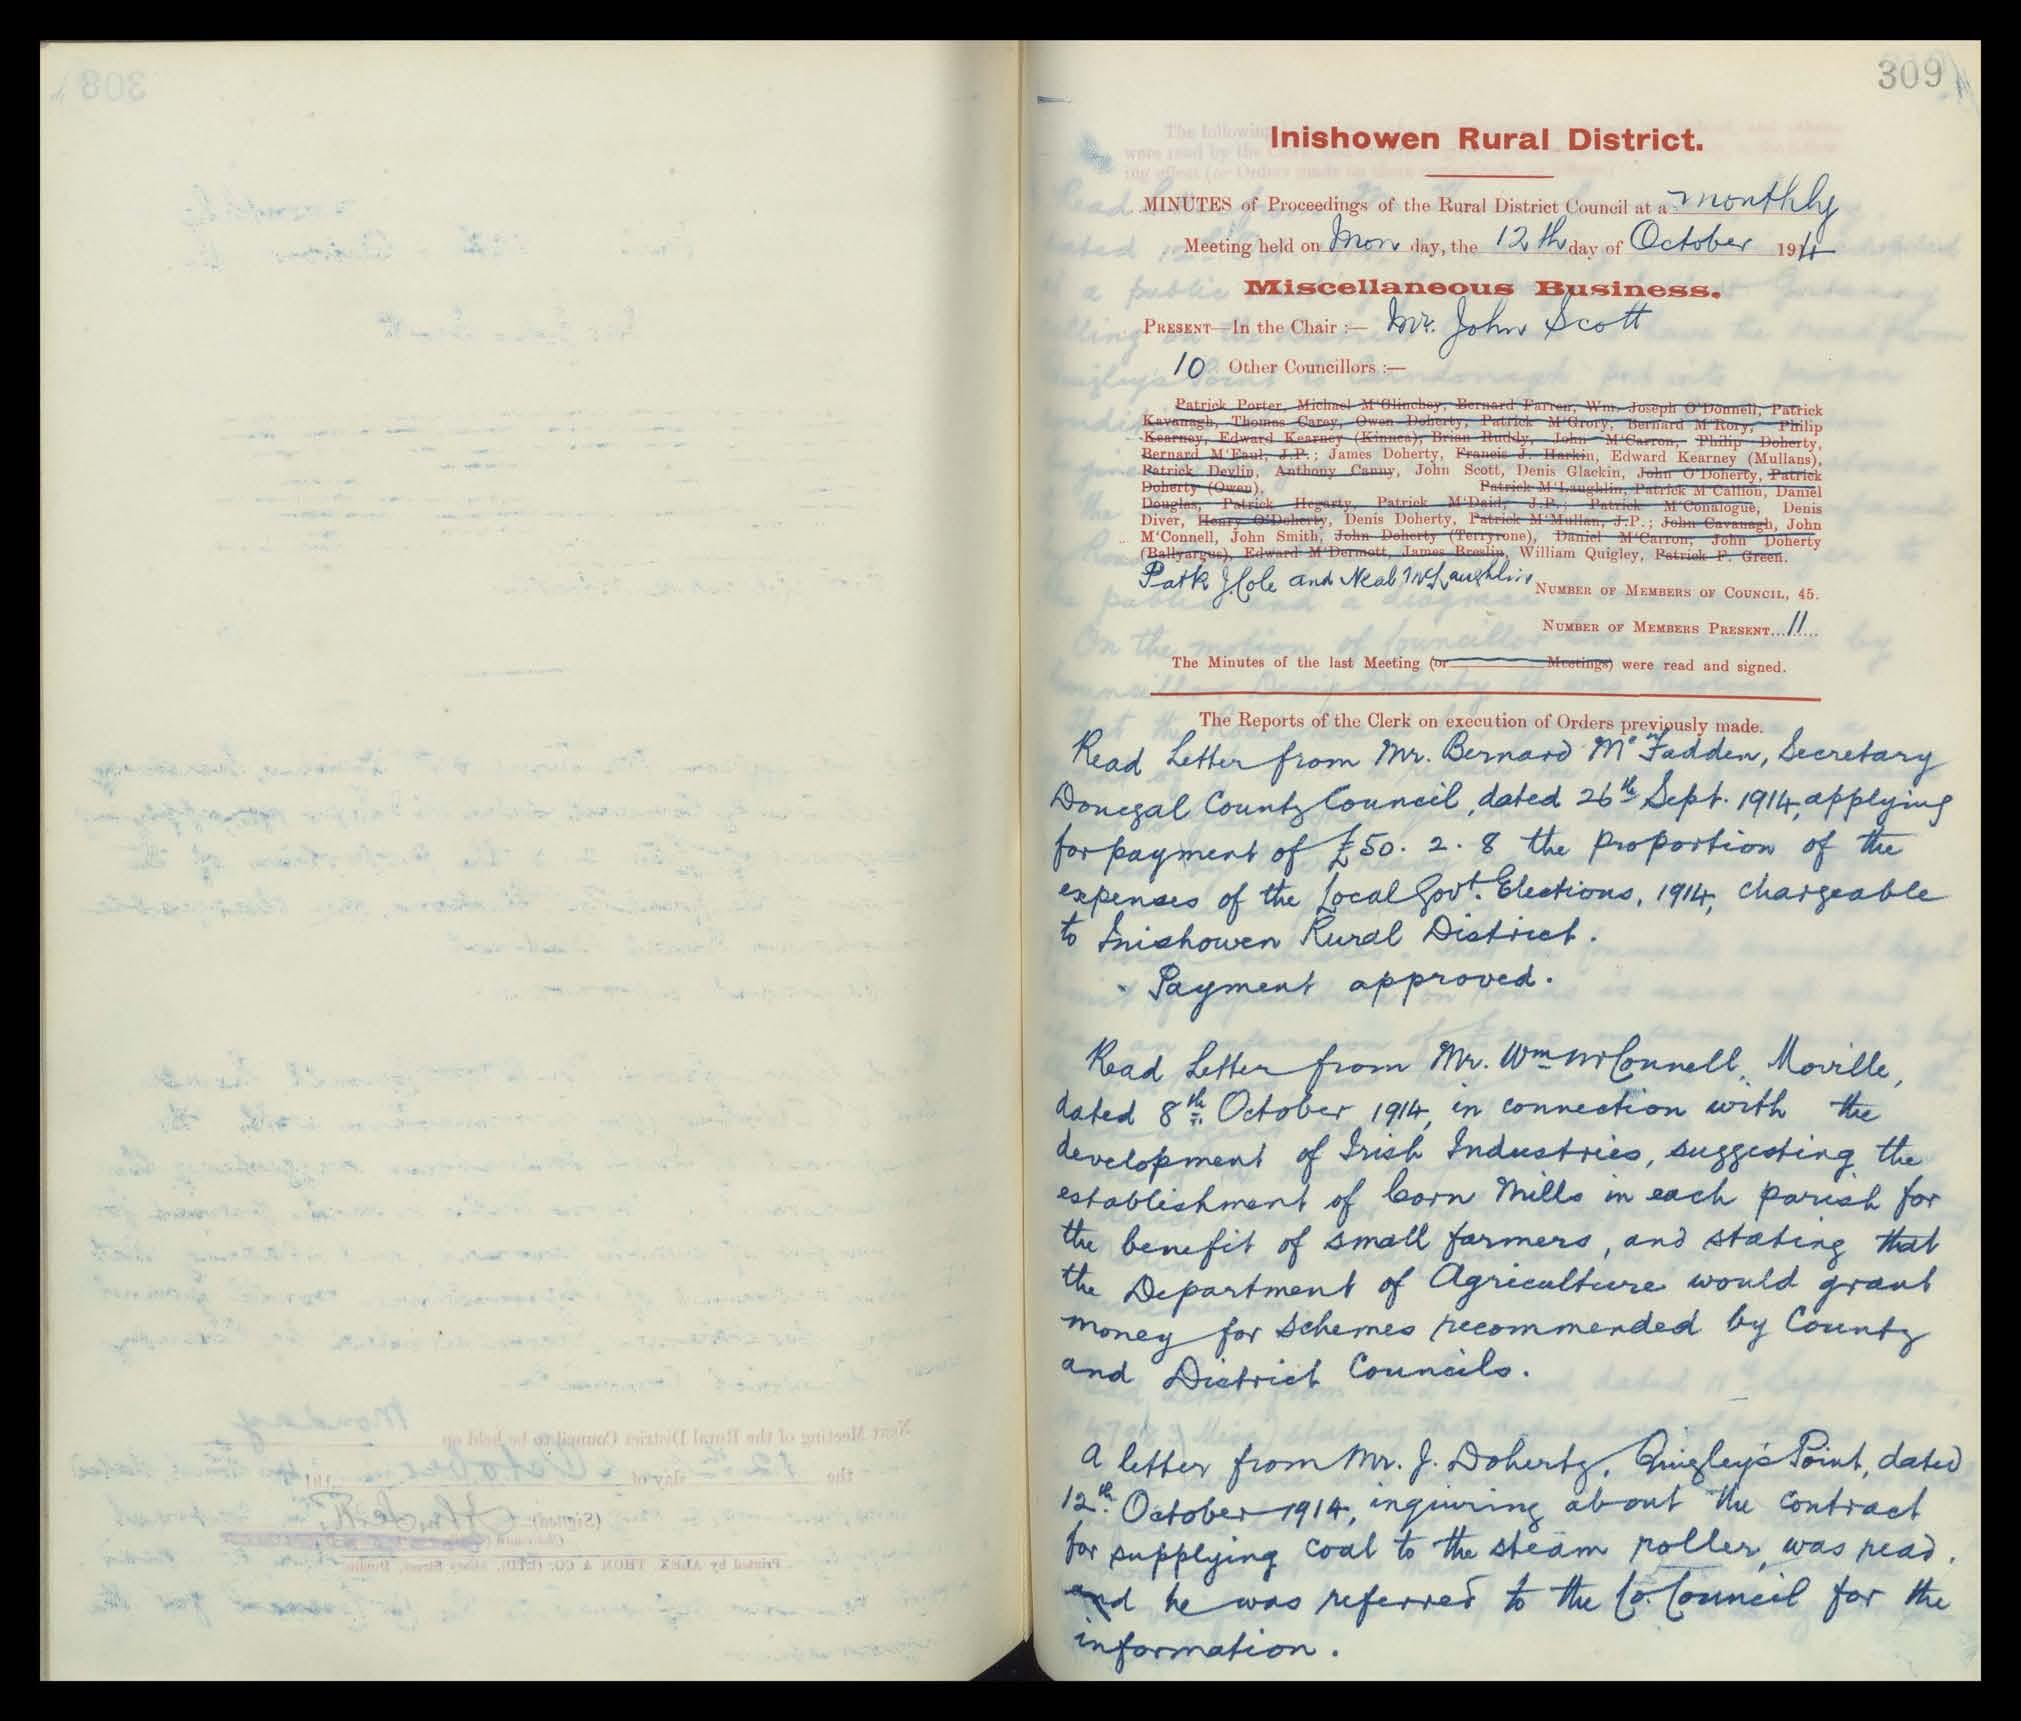 309
Inishowen Rural District.
MINUTES of Proceedings of the Rural District Council at a monthly
Meeting held on Mon day, the 12th day of October 1914
Miscellaneous Business.
PRESENT—In the Chair :— Mr. John Scott
10 Other Councillors :—
Patrick Porter, Michael M'Glinchey, Bernard Farren, Wm. Joseph O'Donnell, Patrick
Kavanagh, Thomas Carey, Owen Doherty, Patrick M'Grory, Bernard M'Rory, Philip
Kearney, Edward Kearney (Kinnea), Brian Ruddy, John M'Carron, Philip Doherty,
Bernard M'Faul, J.P.; James Doherty, Francis J. Harkin, Edward Kearney (Mullans),
Patrick Devlin, Anthony Canny, John Scott, Denis Glackin, John O'Doherty, Patrick
Doherty (Owen), Patrick M'Laughlin, Patrick M'Callion, Daniel
Douglas, Patrick Hegarty, Patrick M'Daid, J.P.; Patrick M'Conalogue, Denis
Diver, Henry O'Doherty, Denis Doherty, Patrick M'Mullan, J.P.; John Cavanagh, John
M'Connell, John Smith, John Doherty (Terryrone), Daniel M'Carron, John Doherty
(Ballyargus), Edward M'Dermott, James Breslin, William Quigley, Patrick F. Green.
Patk J. Cole and Neal McLaughlin
NUMBER OF MEMBERS OF COUNCIL, 45.
NUMBER OF MEMBERS PRESENT...11...
The Minutes of the last Meeting (or Meetings) were read and signed.
The Reports of the Clerk on execution of Orders previously made.
Read Letter from Mr. Bernard McFadden, Secretary
Donegal County Council, dated 26th Sept. 1914, applying
for payment of £50. 2. 8 the proportion of the
expenses of the Local Govt. Elections, 1914, chargeable
to Inishowen Rural District.
- Payment approved.
Read Letter from Mr. Wm McConnell, Moville,
dated 8th October 1914, in connection with the
development of Irish Industries, suggesting the
establishment of Corn Mills in each parish for
the benefit of small farmers, and stating that
the Department of Agriculture would grant
money for schemes recommended by County
and District Councils.
A letter from Mr. J. Doherty, Quigley's Point, dated
12th October 1914, inquiring about the contract
for supplying coal to the steam roller, was read.
and he was referred to the Co. Council for the
information.